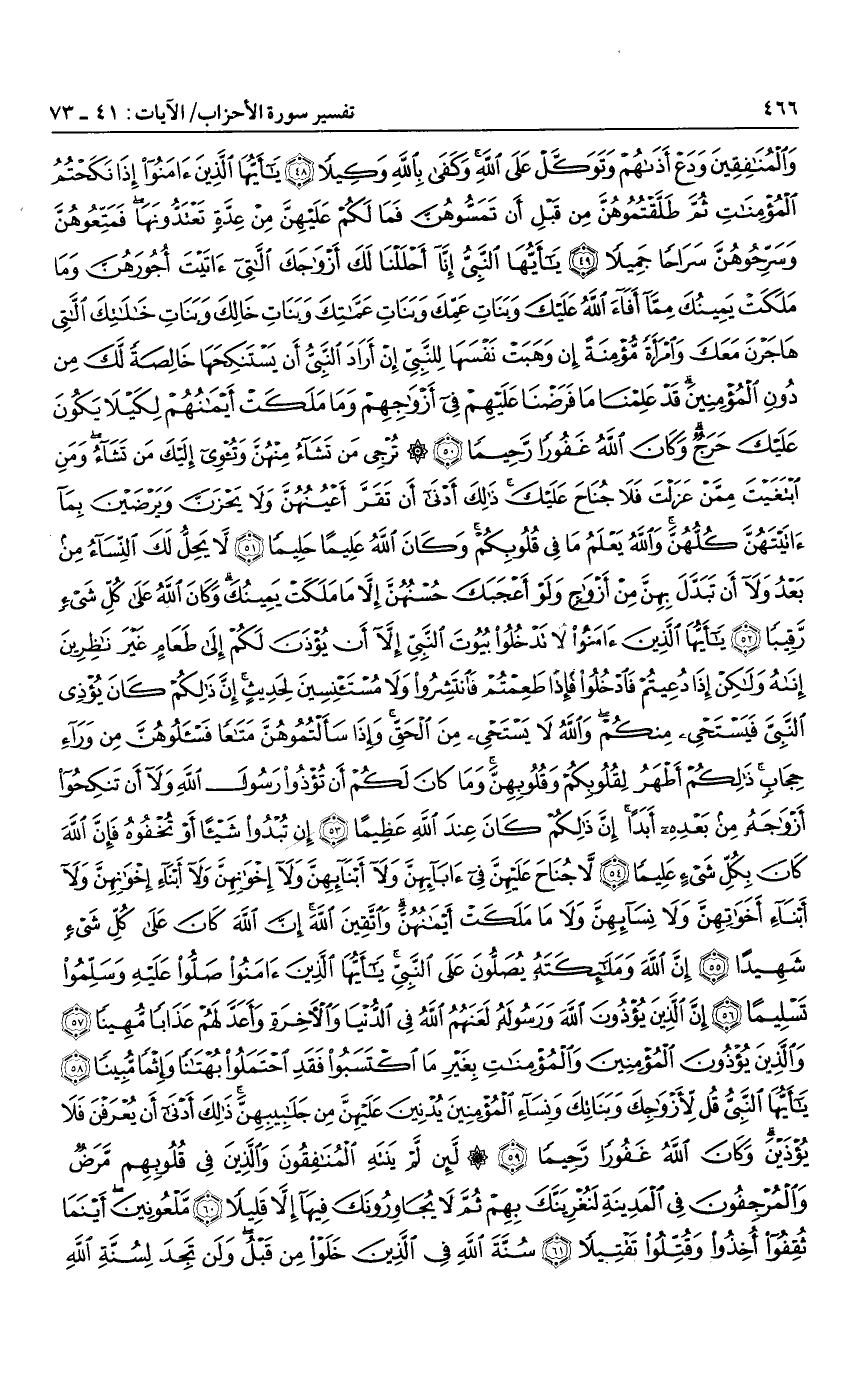 ٤٦٦ تفسير سورة الأحزاب/ الآيات: ٤١ ـ ٧٣
وَٱلْمُنَٰفِقِينَ وَدَعْ أَذَىٰهُمْ وَتَوَكَّلْ عَلَى ٱللَّهِ ۚ وَكَفَىٰ بِٱللَّهِ وَكِيلًا ﴿٤٨﴾ يَٰٓأَيُّهَا ٱلَّذِينَ ءَامَنُوٓا۟ إِذَا نَكَحْتُمُ
ٱلْمُؤْمِنَٰتِ ثُمَّ طَلَّقْتُمُوهُنَّ مِن قَبْلِ أَن تَمَسُّوهُنَّ فَمَا لَكُمْ عَلَيْهِنَّ مِنْ عِدَّةٍ تَعْتَدُّونَهَا ۖ فَمَتِّعُوهُنَّ
وَسَرِّحُوهُنَّ سَرَاحًا جَمِيلًا ﴿٤٩﴾ يَٰٓأَيُّهَا ٱلنَّبِىُّ إِنَّآ أَحْلَلْنَا لَكَ أَزْوَٰجَكَ ٱلَّٰتِىٓ ءَاتَيْتَ أُجُورَهُنَّ وَمَا
مَلَكَتْ يَمِينُكَ مِمَّآ أَفَآءَ ٱللَّهُ عَلَيْكَ وَبَنَاتِ عَمِّكَ وَبَنَاتِ عَمَّٰتِكَ وَبَنَاتِ خَالِكَ وَبَنَاتِ خَٰلَٰتِكَ ٱلَّٰتِى
هَاجَرْنَ مَعَكَ وَٱمْرَأَةً مُّؤْمِنَةً إِن وَهَبَتْ نَفْسَهَا لِلنَّبِىِّ إِنْ أَرَادَ ٱلنَّبِىُّ أَن يَسْتَنكِحَهَا خَالِصَةً لَّكَ مِن
دُونِ ٱلْمُؤْمِنِينَ ۗ قَدْ عَلِمْنَا مَا فَرَضْنَا عَلَيْهِمْ فِىٓ أَزْوَٰجِهِمْ وَمَا مَلَكَتْ أَيْمَٰنُهُمْ لِكَيْلَا يَكُونَ
عَلَيْكَ حَرَجٌ ۗ وَكَانَ ٱللَّهُ غَفُورًا رَّحِيمًا ﴿٥٠﴾ ۞ تُرْجِى مَن تَشَآءُ مِنْهُنَّ وَتُـْٔوِىٓ إِلَيْكَ مَن تَشَآءُ ۖ وَمَنِ
ٱبْتَغَيْتَ مِمَّنْ عَزَلْتَ فَلَا جُنَاحَ عَلَيْكَ ۚ ذَٰلِكَ أَدْنَىٰٓ أَن تَقَرَّ أَعْيُنُهُنَّ وَلَا يَحْزَنَّ وَيَرْضَيْنَ بِمَآ
ءَاتَيْتَهُنَّ كُلُّهُنَّ ۚ وَٱللَّهُ يَعْلَمُ مَا فِى قُلُوبِكُمْ ۚ وَكَانَ ٱللَّهُ عَلِيمًا حَلِيمًا ﴿٥١﴾ لَّا يَحِلُّ لَكَ ٱلنِّسَآءُ مِنۢ
بَعْدُ وَلَآ أَن تَبَدَّلَ بِهِنَّ مِنْ أَزْوَٰجٍ وَلَوْ أَعْجَبَكَ حُسْنُهُنَّ إِلَّا مَا مَلَكَتْ يَمِينُكَ ۗ وَكَانَ ٱللَّهُ عَلَىٰ كُلِّ شَىْءٍ
رَّقِيبًا ﴿٥٢﴾ يَٰٓأَيُّهَا ٱلَّذِينَ ءَامَنُوا۟ لَا تَدْخُلُوا۟ بُيُوتَ ٱلنَّبِىِّ إِلَّآ أَن يُؤْذَنَ لَكُمْ إِلَىٰ طَعَامٍ غَيْرَ نَٰظِرِينَ
إِنَىٰهُ وَلَٰكِنْ إِذَا دُعِيتُمْ فَٱدْخُلُوا۟ فَإِذَا طَعِمْتُمْ فَٱنتَشِرُوا۟ وَلَا مُسْتَـْٔنِسِينَ لِحَدِيثٍ ۚ إِنَّ ذَٰلِكُمْ كَانَ يُؤْذِى
ٱلنَّبِىَّ فَيَسْتَحْىِۦ مِنكُمْ ۖ وَٱللَّهُ لَا يَسْتَحْىِۦ مِنَ ٱلْحَقِّ ۚ وَإِذَا سَأَلْتُمُوهُنَّ مَتَٰعًا فَسْـَٔلُوهُنَّ مِن وَرَآءِ
حِجَابٍ ۚ ذَٰلِكُمْ أَطْهَرُ لِقُلُوبِكُمْ وَقُلُوبِهِنَّ ۚ وَمَا كَانَ لَكُمْ أَن تُؤْذُوا۟ رَسُولَ ٱللَّهِ وَلَآ أَن تَنكِحُوٓا۟
أَزْوَٰجَهُۥ مِنۢ بَعْدِهِۦٓ أَبَدًا ۚ إِنَّ ذَٰلِكُمْ كَانَ عِندَ ٱللَّهِ عَظِيمًا ﴿٥٣﴾ إِن تُبْدُوا۟ شَيْـًٔا أَوْ تُخْفُوهُ فَإِنَّ ٱللَّهَ
كَانَ بِكُلِّ شَىْءٍ عَلِيمًا ﴿٥٤﴾ لَّا جُنَاحَ عَلَيْهِنَّ فِىٓ ءَابَآئِهِنَّ وَلَآ أَبْنَآئِهِنَّ وَلَآ إِخْوَٰنِهِنَّ وَلَآ أَبْنَآءِ إِخْوَٰنِهِنَّ وَلَآ
أَبْنَآءِ أَخَوَٰتِهِنَّ وَلَا نِسَآئِهِنَّ وَلَا مَا مَلَكَتْ أَيْمَٰنُهُنَّ ۗ وَٱتَّقِينَ ٱللَّهَ ۚ إِنَّ ٱللَّهَ كَانَ عَلَىٰ كُلِّ شَىْءٍ
شَهِيدًا ﴿٥٥﴾ إِنَّ ٱللَّهَ وَمَلَٰٓئِكَتَهُۥ يُصَلُّونَ عَلَى ٱلنَّبِىِّ ۚ يَٰٓأَيُّهَا ٱلَّذِينَ ءَامَنُوا۟ صَلُّوا۟ عَلَيْهِ وَسَلِّمُوا۟
تَسْلِيمًا ﴿٥٦﴾ إِنَّ ٱلَّذِينَ يُؤْذُونَ ٱللَّهَ وَرَسُولَهُۥ لَعَنَهُمُ ٱللَّهُ فِى ٱلدُّنْيَا وَٱلْءَاخِرَةِ وَأَعَدَّ لَهُمْ عَذَابًا مُّهِينًا ﴿٥٧﴾
وَٱلَّذِينَ يُؤْذُونَ ٱلْمُؤْمِنِينَ وَٱلْمُؤْمِنَٰتِ بِغَيْرِ مَا ٱكْتَسَبُوا۟ فَقَدِ ٱحْتَمَلُوا۟ بُهْتَٰنًا وَإِثْمًا مُّبِينًا ﴿٥٨﴾
يَٰٓأَيُّهَا ٱلنَّبِىُّ قُل لِّأَزْوَٰجِكَ وَبَنَاتِكَ وَنِسَآءِ ٱلْمُؤْمِنِينَ يُدْنِينَ عَلَيْهِنَّ مِن جَلَٰبِيبِهِنَّ ۚ ذَٰلِكَ أَدْنَىٰٓ أَن يُعْرَفْنَ فَلَا
يُؤْذَيْنَ ۗ وَكَانَ ٱللَّهُ غَفُورًا رَّحِيمًا ﴿٥٩﴾ ۞ لَّئِن لَّمْ يَنتَهِ ٱلْمُنَٰفِقُونَ وَٱلَّذِينَ فِى قُلُوبِهِم مَّرَضٌ
وَٱلْمُرْجِفُونَ فِى ٱلْمَدِينَةِ لَنُغْرِيَنَّكَ بِهِمْ ثُمَّ لَا يُجَاوِرُونَكَ فِيهَآ إِلَّا قَلِيلًا ﴿٦٠﴾ مَّلْعُونِينَ ۖ أَيْنَمَا
ثُقِفُوٓا۟ أُخِذُوا۟ وَقُتِّلُوا۟ تَقْتِيلًا ﴿٦١﴾ سُنَّةَ ٱللَّهِ فِى ٱلَّذِينَ خَلَوْا۟ مِن قَبْلُ ۖ وَلَن تَجِدَ لِسُنَّةِ ٱللَّهِ